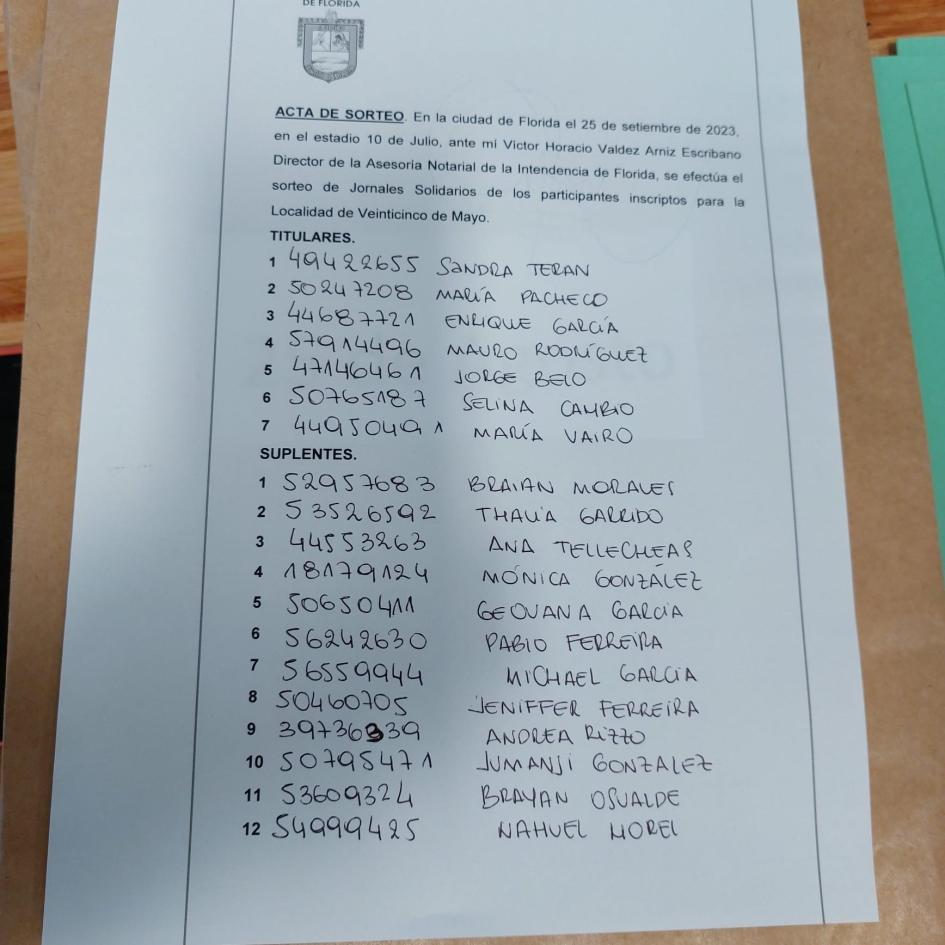 DE FLORIDA
ACTA DE SORTEO. En la ciudad de Florida el 25 de setiembre de 2023,
en el estadio 10 de Julio, ante mi Victor Horacio Valdez Arniz Escribano
Director de la Asesoría Notarial de la Intendencia de Florida, se efectúa el
sorteo de Jornales Solidarios de los participantes inscriptos para la
Localidad de Veinticinco de Mayo.
TITULARES.
1 49422655 SANDRA TERAN
2 50247208 MARÍA PACHECO
3 44687721 ENRIQUE GARCÍA
4 57914496 MAURO RODRÍGUEZ
5 47146461 JORGE BELO
6 50765187 SELINA CAMBIO
7 44950491 MARÍA VAIRO
SUPLENTES.
1 52957683 BRAIAN MORALES
2 53526592 THALIA GARRIDO
3 44553263 ANA TELLECHEA
4 18179124 MÓNICA GONZÁLEZ
5 50650411 GEOVANA GARCIA
6 56242630 PABLO FERREIRA
7 56559944 MICHAEL GARCIA
8 50460705 JENIFFER FERREIRA
9 39736339 ANDREA RIZZO
10 50795471 JUMANJI GONZALEZ
11 53609324 BRAYAN OSVALDE
12 54999425 NAHUEL MOREL